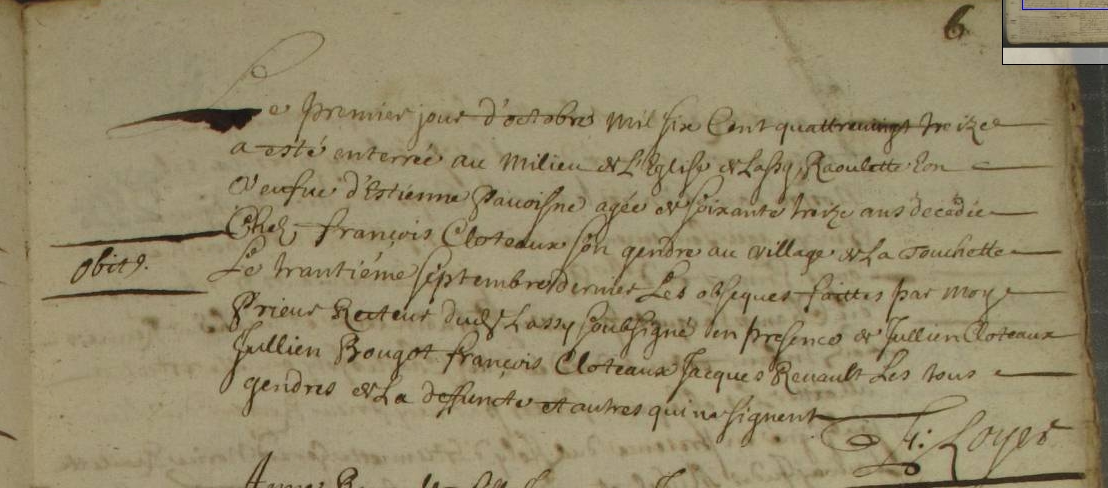 6
Le premier jour d'octobre mil six Cent quattrevingt treize
a esté enterrée au milieu de L'Eglise de Lassy, Raoulette
Veufue d'Estienne pavoisne agée de soixante treize ans decedée
Chez françois Cloteaux son gendre au village de La Touchette
Obit9.
Le trantiéme septembre dernier Les obseques faittes par moy
Prieur Recteur dud Lassy soubsigné en presence de Jullien Cloteaux
Jullien Bougot françois Cloteaux Jacques Renault Les tous
gendres de La deffuncte et autres qui ne signent
Loyer